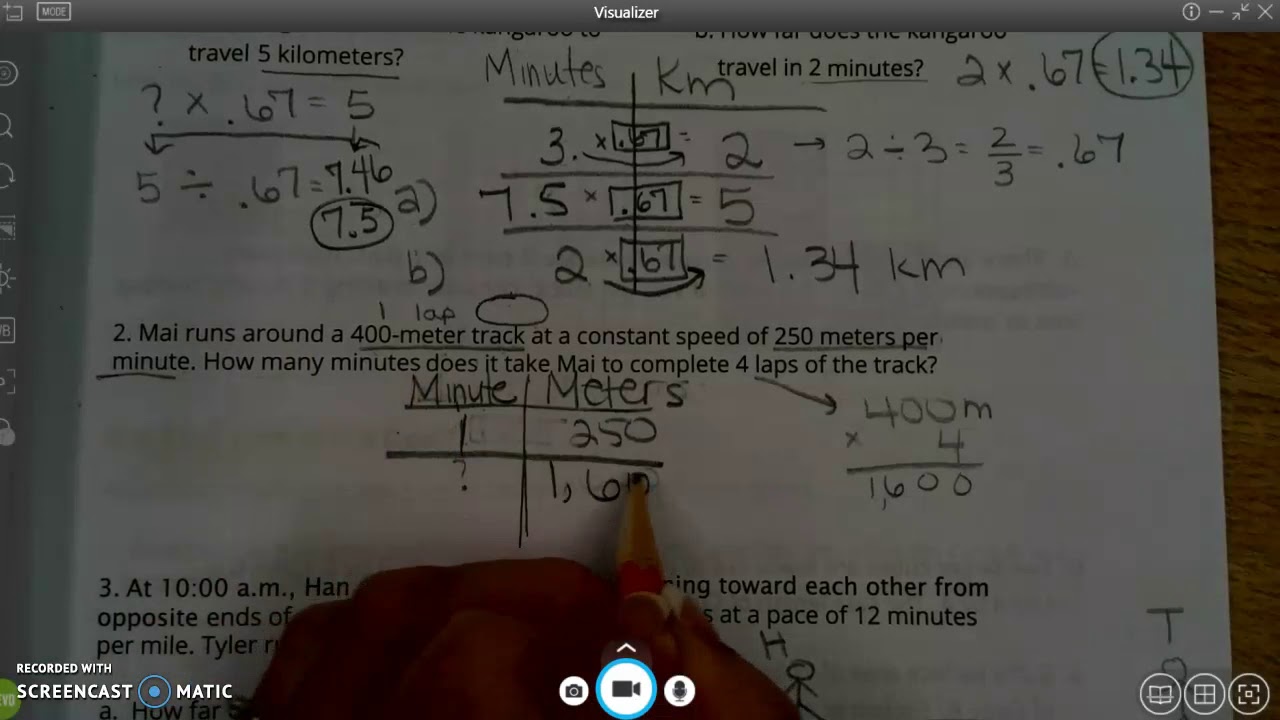 MODE
Visualizer
travel 5 kilometers?
Minutes Km
travel in 2 minutes? 2 x .67 = 1.34
? x .67 = 5
3. x .67 = 2 → 2 ÷ 3 = 2/3 = .67
5 ÷ .67 = 7.46
7.5
a) 7.5 x .67 = 5
b) 2 x .67 = 1.34 km
1 lap
2. Mai runs around a 400-meter track at a constant speed of 250 meters per
minute. How many minutes does it take Mai to complete 4 laps of the track?
Minute Meters
1 250
? 1,60
400m
x 4
1,600
3. At 10:00 a.m., Han
ing toward each other from
opposite ends of
s at a pace of 12 minutes
per mile. Tyler
H
T
RECORDED WITH
SCREENCAST MATIC
a. How far